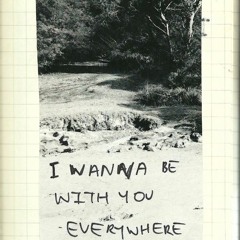 I WANNA BE
WITH YOU
EVERYWHERE